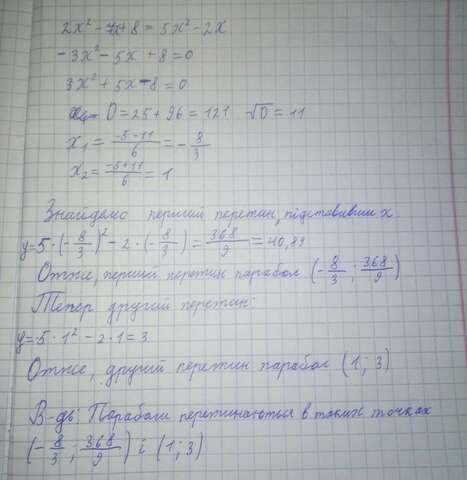 2x² - 7x + 8 = 5x² - 2x
-3x² - 5x + 8 = 0
3x² + 5x - 8 = 0
D = 25 + 96 = 121 √D = 11
x₁ = (-5-11)/6 = -8/3
x₂ = (-5+11)/6 = 1
Знайдемо перший перетин, підставивши x.
y = 5 · (-8/3)² - 2 · (-8/3) = 368/9 = 40,89
Отже, перший перетин парабол (-8/3; 368/9)
Тепер другий перетин:
y = 5 · 1² - 2 · 1 = 3
Отже, другий перетин парабол (1; 3)
В-дь: Параболи перетинаються в таких точках
(-8/3; 368/9) і (1; 3)